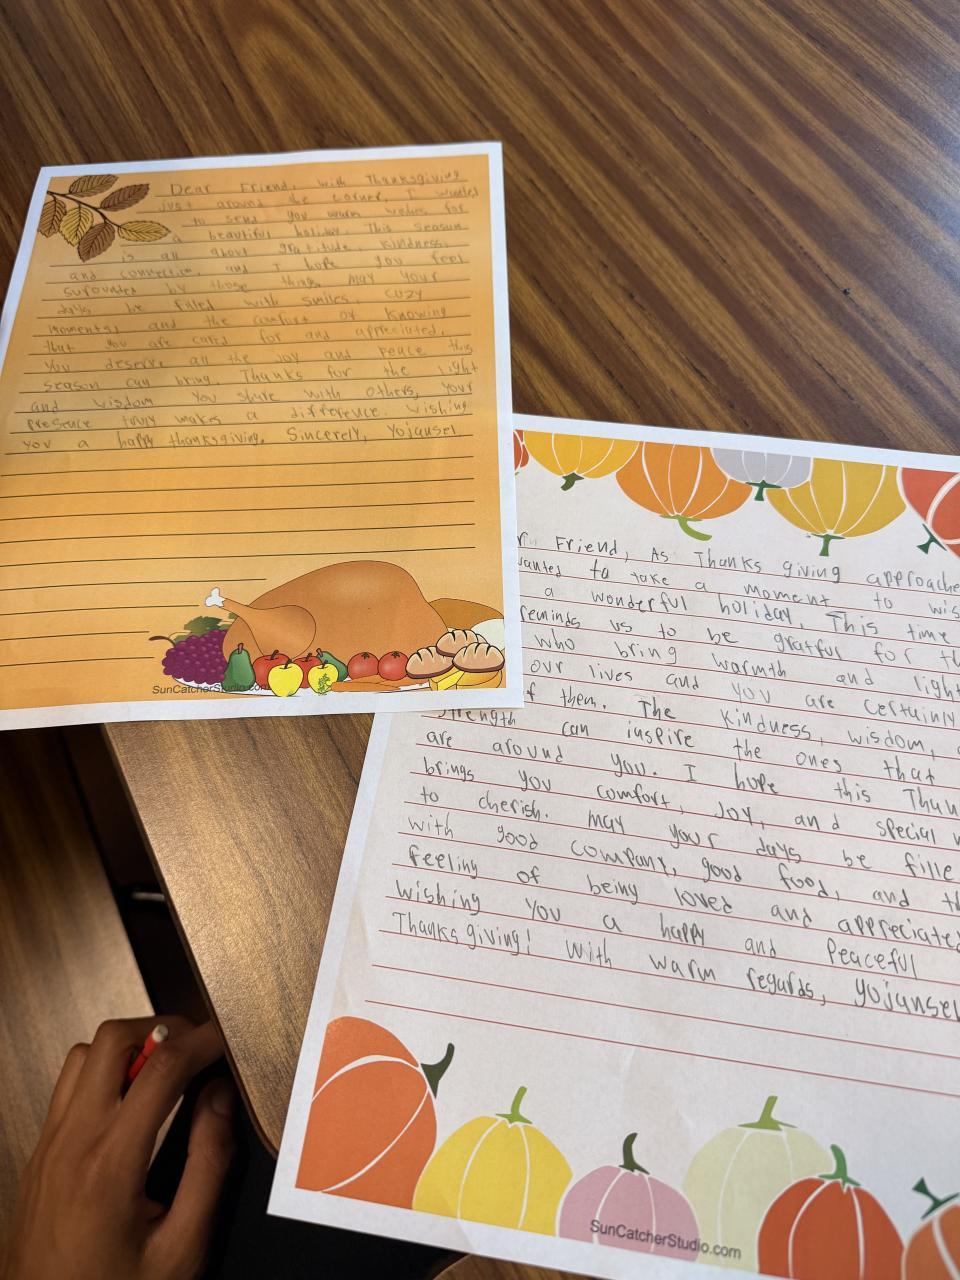 Dear Friend, with Thanksgiving
just around the corner, I wanted
to send you warm wishes for
a beautiful holiday. This season
is all about gratitude, kindness,
and connection, and I hope you feel
surounded by those things. may your
days be filled with smiles, cozy
moments, and the comfort of knowing
that you are cared for and appreciated.
You deserve all the joy and peace this
season can bring. Thanks for the light
and wisdom you share with others, your
presence truly makes a difference. wishing
you a happy thanksgiving. Sincerely, Yojansel
SunCatcherStudio.com
Friend, As Thanks giving approache
wanted to take a moment to wis
a wonderful holiday. This time
reminds us to be gratful for th
who bring warmth and light
our lives and you are certainly
of them. The kindness, wisdom,
strength can inspire the ones that
are around you. I hope this Than
brings you comfort, Joy, and special
to cherish. may your days be fille
with good company, good food, and th
feeling of being loved and appreciated
wishing you a happy and Peaceful
Thanks giving! With warm regards, Yojansel
SunCatcherStudio.com